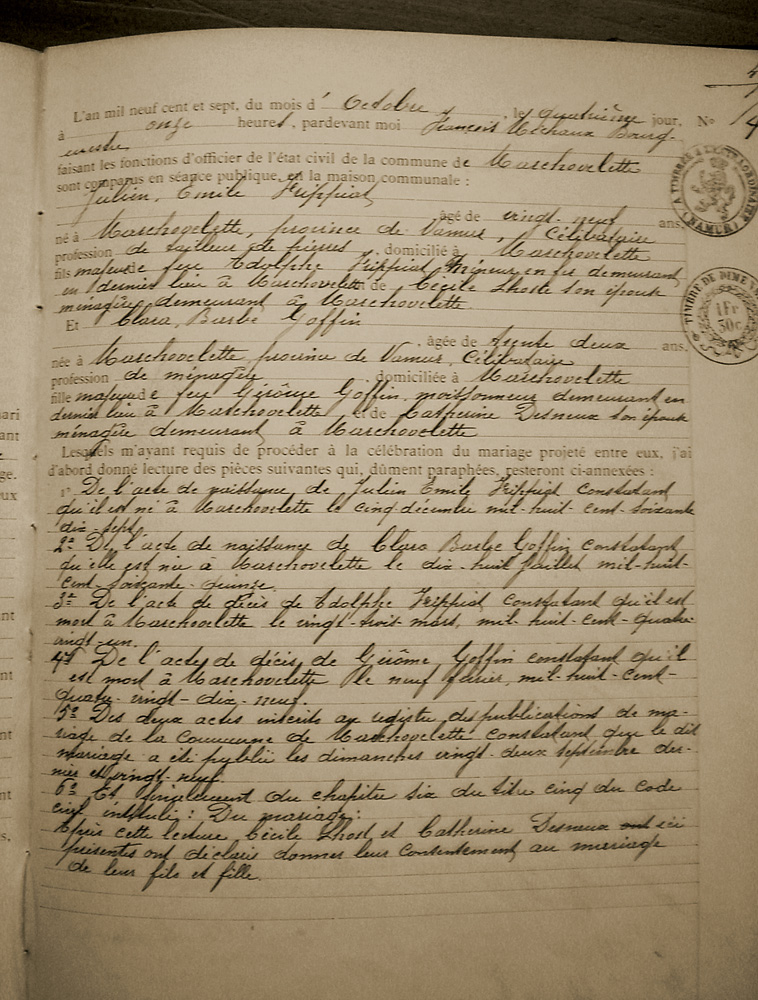 L'an mil neuf cent et sept, du mois d' Octobre, le quatrième jour, N°
à onze heures, pardevant moi François Bourg-
mestre
faisant les fonctions d'officier de l'état civil de la commune de Marchovelette
sont comparus en séance publique, en la maison communale :
Julien, Emile Frippiat
âgé de vingt-neuf ans,
né à Marchovelette, province de Namur, Célibataire
profession de tailleur de pierres, domicilié à Marchovelette
fils majeur de feu Adolphe Frippiat, Mineur en fer demeurant
en dernier lieu à Marchovelette et de Cécile Lhoste son épouse
ménagère demeurant à Marchovelette.
Et Clara, Barbe Goffin
âgée de trente deux ans,
née à Marchovelette, province de Namur, Célibataire
profession de ménagère, domiciliée à Marchovelette
fille majeure de feu Gérôme Goffin, moissonneur demeurant en
dernier lieu à Marchovelette et de Catherine Desneux son épouse
ménagère demeurant à Marchovelette
Lesquels m'ayant requis de procéder à la célébration du mariage projeté entre eux, j'ai
d'abord donné lecture des pièces suivantes qui, dûment paraphées, resteront ci-annexées :
1° De l'acte de naissance de Julien Emile Frippiat constatant
qu'il est né à Marchovelette le cinq décembre mil-huit-cent-soixante
dix-sept.
2° De l'acte de naissance de Clara Barbe Goffin constatant
qu'elle est née à Marchovelette le dix-huit Juillet mil-huit-
cent-soixante-quinze.
3° De l'acte de décès de Adolphe Frippiat constatant qu'il est
mort à Marchovelette le vingt-trois mars, mil-huit-cent-quatre-
vingt-un.
4° De l'acte de décès de Gérôme Goffin constatant qu'il
est mort à Marchovelette le neuf février, mil-huit-cent-
quatre-vingt-dix-neuf.
5° Des deux actes inscrits au registre des publications de ma-
riage de la Commune de Marchovelette constatant que le dit
mariage a été publié les dimanches vingt-deux septembre der-
nier et vingt-neuf.
6° Et finalement du chapitre six du titre cinq du code
civil intitulé : Du mariage.
Après cette lecture, Cécile Lhost et Catherine Desneux ont ici
présentes ont déclaré donner leur consentement au mariage
de leur fils et fille.
TIMBRÉ À L'EXTRAORDINAIRE
(NAMUR)
TIMBRE DE DIME
1 Fr
30c